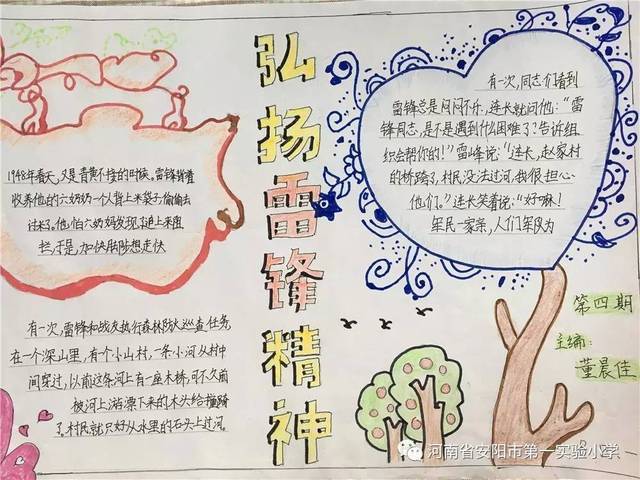 弘扬雷锋精神
1948年春天,又是青黄不接的时候,雷锋背着
收养他的六奶奶一个人背上米袋子偷偷去
讨米了。他怕六奶奶发现,追上来阻
拦,于是,加快脚步想走快
有一次,雷锋和战友执行森林防火巡查任务,
在一个深山里,有个小山村,一条小河从村中
间穿过,以前这条河上有一座木桥,可不久前
被河上游漂下来的木头给撞跨
了。村民就只好从水里的石头上过河。
有一次,同志们看到
雷锋总是闷闷不乐,连长就问他:“雷
锋同志,是不是遇到什么困难了?告诉组
织会帮你的!”雷峰说:“连长,赵家村
的桥跨了,村民没法过河,我很担心
他们。”连长笑着说:“好嘛!
军民一家亲,人们军队为
第四期
主编:
董晨佳
河南省安阳市第一实验小学